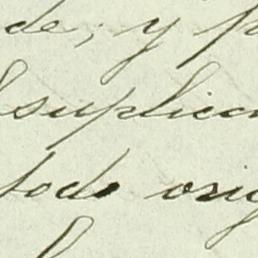 de, y p
suplica
todo orig